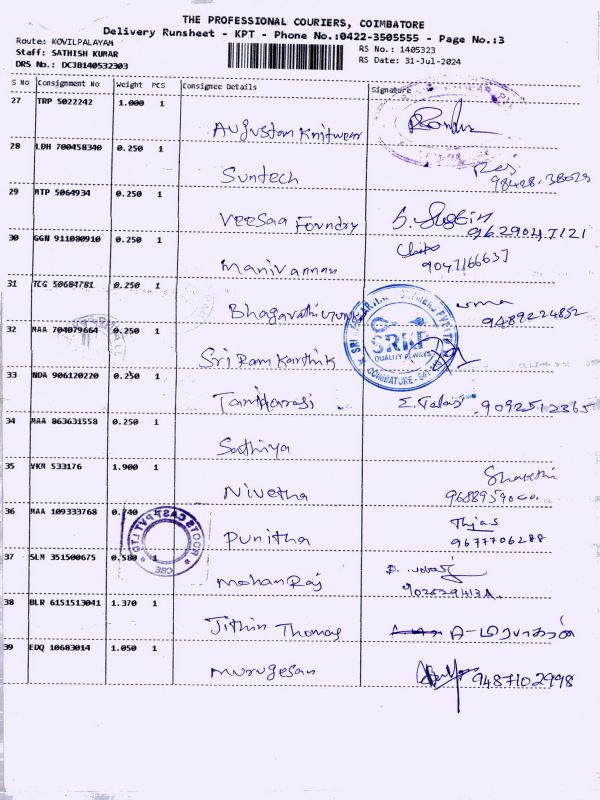 THE PROFESSIONAL COURIERS, COIMBATORE
Delivery Runsheet - KPT - Phone No.:0422-3505555 - Page No.:3
Route: KOVILPALAYAM
Staff: SATHISH KUMAR
DRS No.: DCJB140532303
RS No.: 1405323
RS Date: 31-Jul-2024
S No Consignment No Weight PCS Consignee Details Signature
27 TRP 5022242 1.000 1
Augustan Knitwear
28 LDH 700458340 0.250 1
Suntech
29 MTP 5064934 0.250 1
Veesaa Foundry
30 GGN 911080910 0.250 1
Manivannan 9047166637
31 TCG 50684781 0.250 1
Bhagavathi uma
9489224852
32 MAA 704079664 0.250 1
Sri Ram Karthik
SRKF
QUALITY ALWAYS
COIMBATORE
33 NDA 906120220 0.250 1
9092512365
34 MAA 863631558 0.250 1
Sathiya
35 VKM 533176 1.900 1
Nivetha
36 MAA 109333768 0.740
Punitha 9677706288
ROOTS CAST PVT LTD
CBE
37 SLM 351500675 0.580 1
Mohan Raj
38 BLR 6151513041 1.370 1
Jithin Thomas
39 EDQ 10683014 1.050 1
Murugesan 9487102998